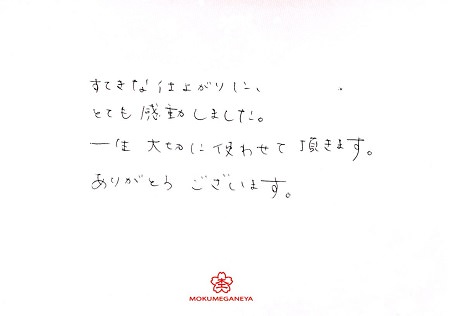 すてきな仕上がりに、
とても感動しました。
一生 大切に使わせて 頂きます。
ありがとう ございます。
MOKUMEGANEYA